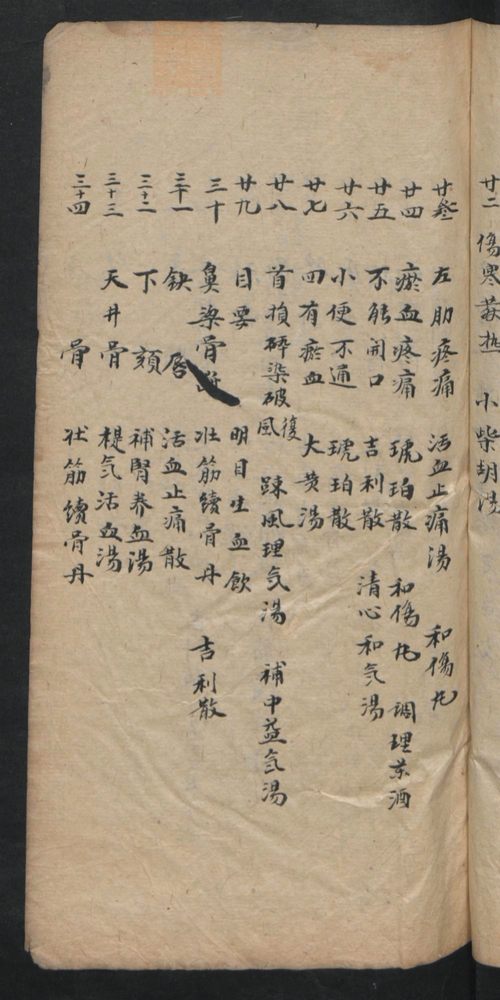 廿二 傷寒蓺热 小柴胡湯
廿叁 左肋疼痛 活血止痛湯 和傷丸
廿四 瘀血疼痛 琥珀散 和傷丸 调理药酒
廿五 不能開口 吉利散 清心和気湯
廿六 小便不通 琥珀散
廿七 四有瘀血 大黄湯
廿八 首損碎染破風復 踈風理気湯 補中益気湯
廿九 目要 明目生血飲
三十 鼻梁骨断 壮筋續骨丹 吉利散
三十一 缺唇 活血止痛散
三十二 下頦 補腎养血湯
三十三 天井骨 提気活血湯
三十四 骨 壮筋續骨丹